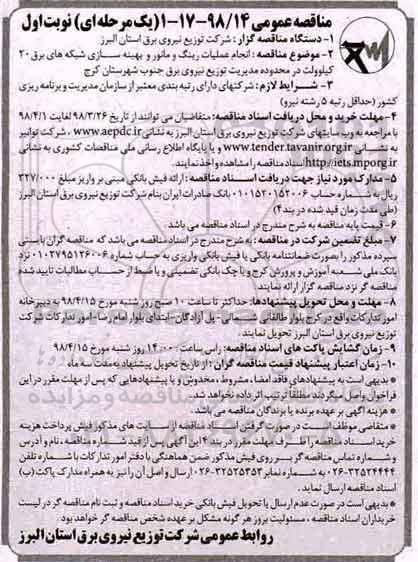 مناقصه عمومی ۹۸/۱۴-۱۷-۱(یک مرحله ای) نوبت اول
۱- دستگاه مناقصه گزار : شرکت توزیع نیروی برق استان البرز
۲- موضوع مناقصه : انجام عملیات رینگ و مانور و بهینه سازی شبکه های برق ۲۰
کیلوولت در محدوده مدیریت توزیع نیروی برق جنوب شهرستان کرج
۳- شرایط لازم : شرکتهای دارای رتبه بندی معتبر از سازمان مدیریت و برنامه ریزی
کشور (حداقل رتبه ۵ رشته نیرو)
۴- مهلت خرید و محل دریافت اسناد مناقصه: متقاضیان می توانند از تاریخ ۹۸/۳/۲۶ لغایت ۹۸/۴/۱
با مراجعه به وب سایتهای شرکت توزیع نیروی برق استان البرز به نشانی www.aepdc.ir ، شرکت توانیر
به نشانی www.tender.tavanir.org.ir و یا پایگاه اطلاع رسانی ملی مناقصات کشوری به نشانی
http://iets.mporg.ir اسناد مناقصه را مشاهده و اخذ نمایند.
۵- مدارک مورد نیاز جهت دریافت اسناد مناقصه : ارائه فیش بانکی مبنی بر واریز مبلغ ۳۲۷/۰۰۰
ریال به شماره حساب ۰۱۰۱۵۲۰۱۵۲۰۰۶ بانک صادرات ایران بنام شرکت توزیع نیروی برق استان البرز
(طی مدت زمان قید شده در بند ۴)
۶- قیمت پایه مناقصه به شرح مندرج در اسناد مناقصه می باشد.
۷- مبلغ تضمین شرکت در مناقصه : به شرح مندرج در اسناد مناقصه می باشد که مناقصه گران بایستی
سپرده مذکور را بصورت ضمانتنامه بانکی یا فیش بانکی واریزی به حساب شماره ۰۱۰۲۷۹۵۱۲۶۰۰۶ نزد
بانک ملی شعبه آموزش و پرورش کرج و یا چک بانکی تضمینی و یا ضبط از حساب مطالبات تایید شده
مناقصه گر نزد مناقصه گزار ارائه نمایند.
۸- مهلت و محل تحویل پیشنهادها: حداکثر تا ساعت ۱۰ صبح روز شنبه مورخ ۹۸/۴/۱۵ به دبیرخانه
امور تدارکات واقع در کرج بلوار طالقانی شمالی - پل آزادگان - ابتدای بلوار امام رضا - امور تدارکات شرکت
توزیع نیروی برق استان البرز تحویل نمایند.
۹- زمان گشایش پاکت های اسناد مناقصه: راس ساعت ۱۴:۰۰ روز شنبه مورخ ۹۸/۴/۱۵
۱۰- زمان اعتبار پیشنهاد قیمت مناقصه گران : از تاریخ تحویل پیشنهاد به مدت سه ماه
* بدیهی است به پیشنهادهای فاقد امضاء، مشروط، مخدوش و یا پیشنهادهایی که پس از مهلت مقرر در این
فراخوان واصل میگردند مطلقاً ترتیب اثر داده نخواهد شد.
* هزینه آگهی بر عهده برنده یا برندگان مناقصه می باشد.
* متقاضی موظف است در صورت گرفتن اسناد مناقصه از سایت های مذکور فیش پرداخت هزینه
خرید اسناد مناقصه را ظرف مهلت مقرر در بند ۴ این آگهی پس از قید شماره مناقصه، نام و آدرس
و شماره تماس مناقصه گر بر روی فیش مذکور ضمن هماهنگی با دفتر امور تدارکات با شماره تلفن
۳۲۵۲۴۴۴۴-۰۲۶ به شماره نمابر ۳۲۵۲۵۳۵۳-۰۲۶ ارسال و اصل آن را نیز به همراه مدارک پاکت (ب)
اسناد مناقصه ارسال نماید.
* بدیهی است در صورت عدم ارسال یا تحویل فیش بانکی خرید اسناد مناقصه و ثبت نام مناقصه گر در لیست
خریداران اسناد مناقصه ، مسئولیت بروز هر گونه مشکل بر عهده شخص مناقصه گر خواهد بود.
روابط عمومی شرکت توزیع نیروی برق استان البرز